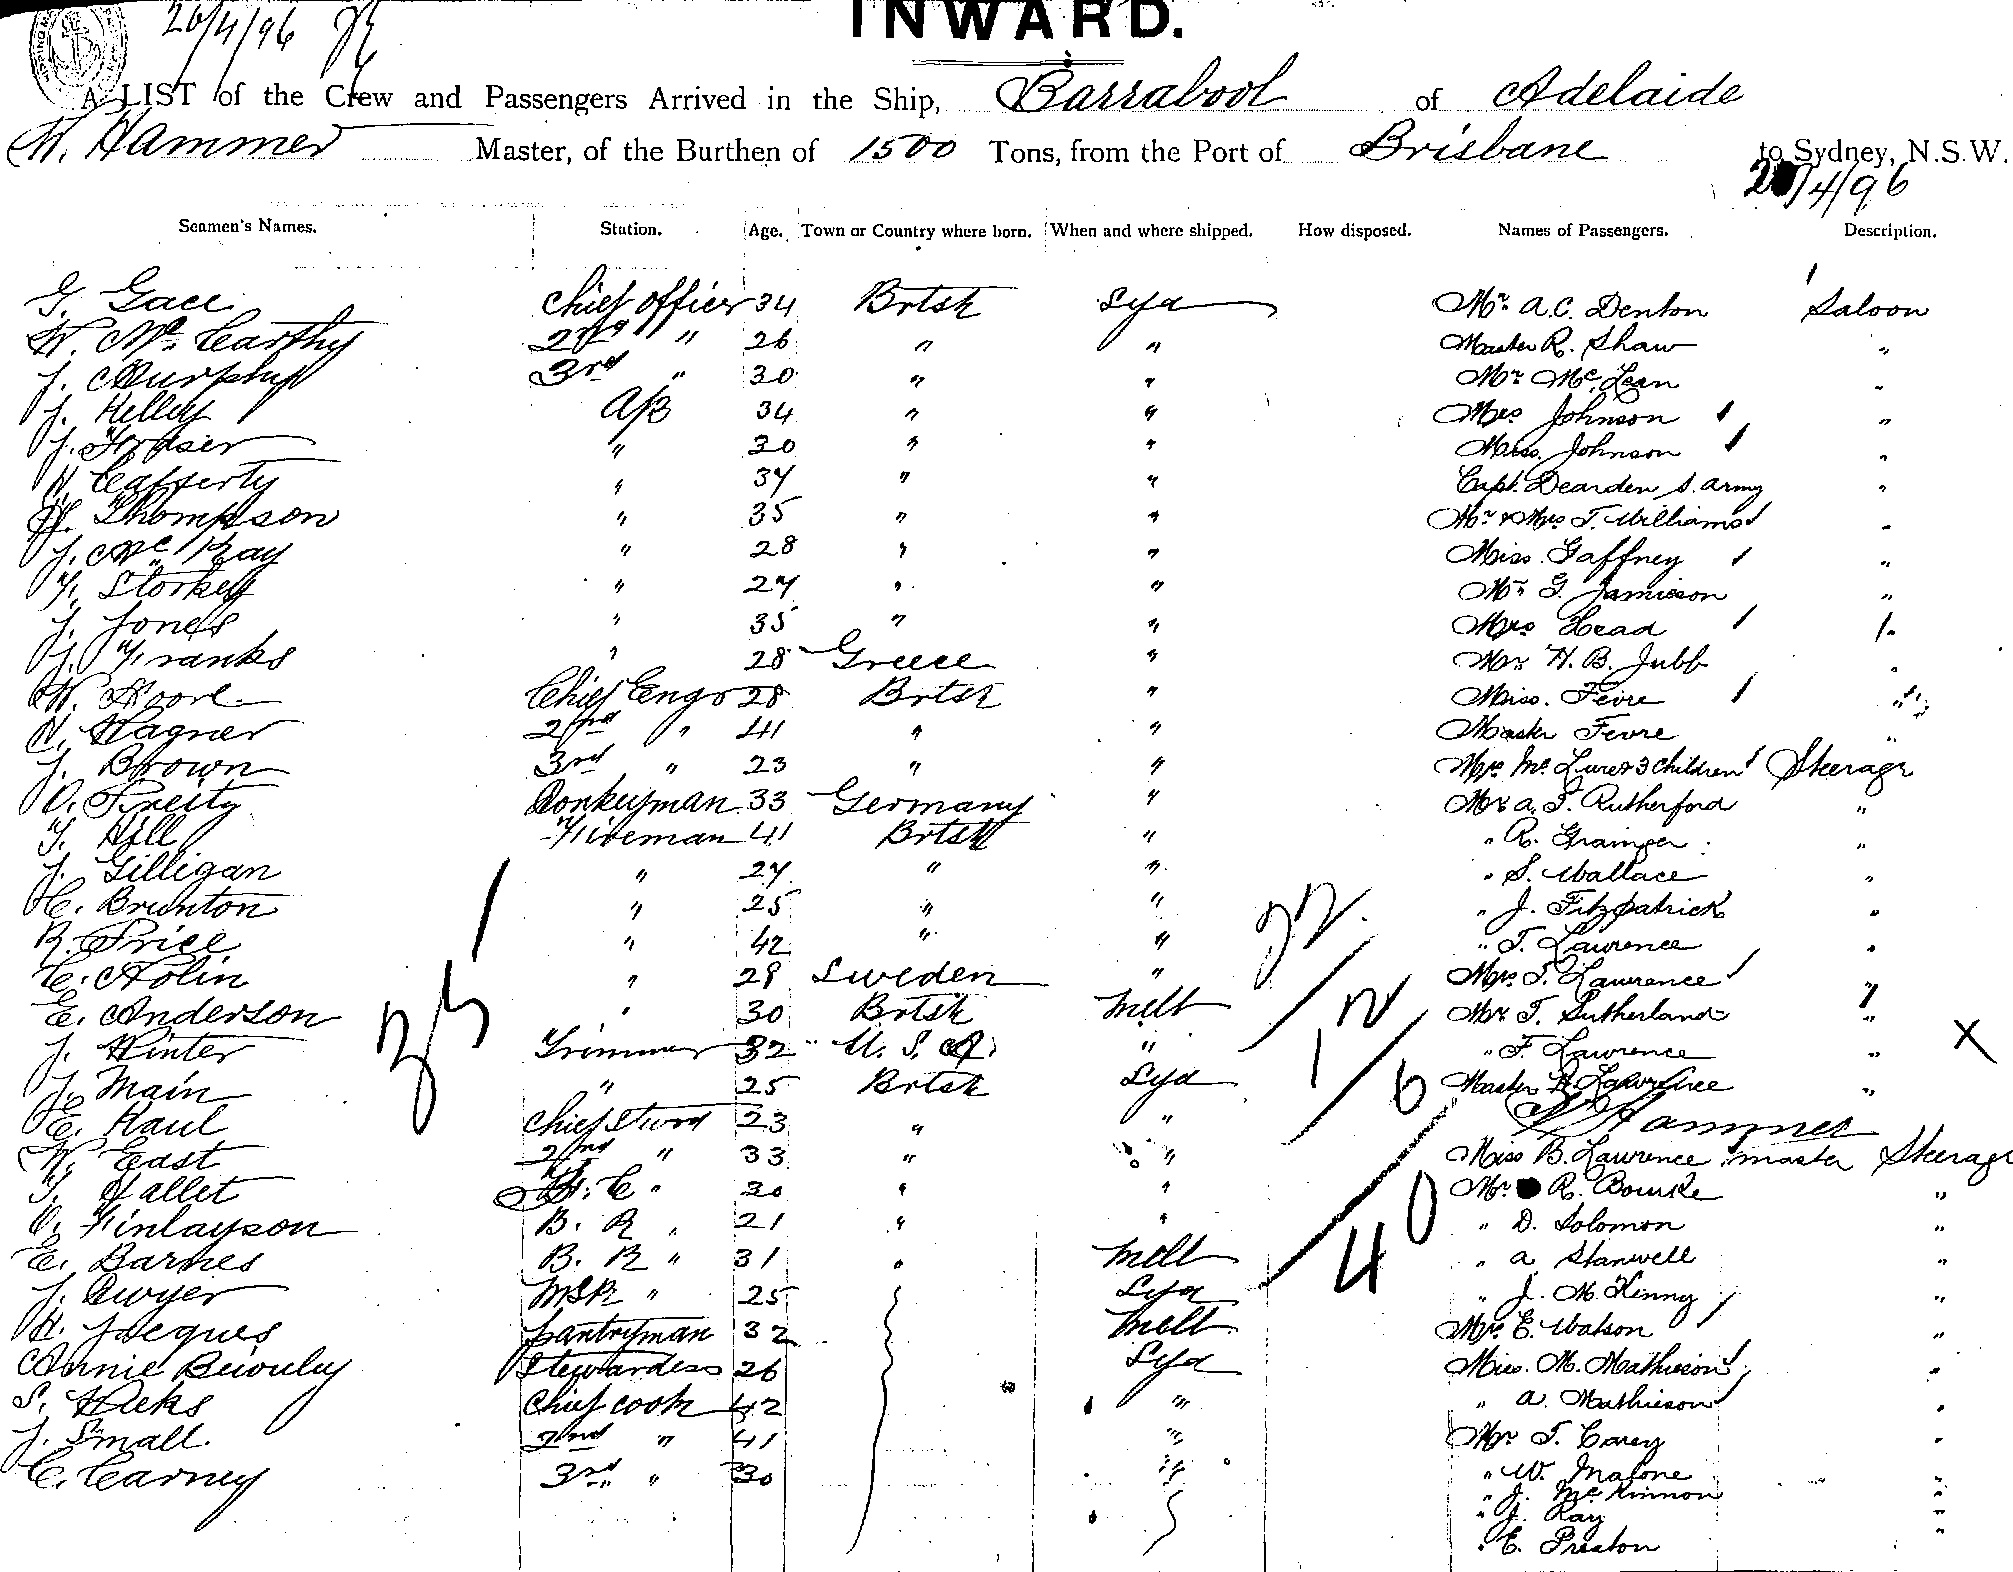 26/4/96
INWARD.
A LIST of the Crew and Passengers Arrived in the Ship, Barrabool of Adelaide
Hammer Master, of the Burthen of 1500 Tons, from the Port of Brisbane to Sydney, N.S.W.
/4/96
Seamen's Names. Station. Age. Town or Country where born. When and where shipped. How disposed. Names of Passengers. Description.
G. Gace chief officer 34 Brtsh Syd Mr. A. C. Denton Saloon
W. Mc. Carthy 2nd " 26 " " Master R. Shaw "
J. Murphy 3rd " 30 " " Mr Mc. Lean "
J. Kelley A/B 34 " " Mrs Johnson "
J. Fraser " 30 " " Miss. Johnson "
Cafferty " 34 " " Capt. Dearden S. Army "
H. Thompson " 35 " " Mr & Mrs T. Williams "
J. Mc Kay " 28 " " Miss. Gaffney "
F. Storkey " 27 " " Mr G. Jamieson "
J. Jones " 35 " " Mrs Head "
J. Franks " 28 Greece " Mr H. B. Jubb "
W. Moore Chief Engr 28 Brtsh " Miss. Fevre "
Wagner 2nd " 41 " " Master Fevre "
J. Brown 3rd " 23 " " Mrs Mc. Lure & 3 children Steerage
O. Freity Donkeyman 33 Germany " Mr A. T. Rutherford "
T. Hill Fireman 41 Brtsh " " R. Grainger "
J. Gilligan " 27 " " " S. Wallace "
C. Brunton " 25 " " " J. Fitzpatrick "
R. Price " 42 " " " T. Lawrence "
C. Nolin " 29 Sweden " Mrs T. Lawrence "
E. Anderson " 30 Brtsh Melb Mr T. Sutherland "
J. Winter Trimmer 32 U. S. A. " " F. Lawrence " X
J. Main " 25 Brtsh Syd Master Lawrence "
E. Kaul Chief Stwrd 23 " " Hammer
W. East 2nd " 33 " " Miss B. Lawrence master Steerage
T. Hallet F. C. " 30 " " Mr R. Bourke "
Finlayson B. R " 21 " " " D. Solomon "
E. Barnes B. R " 31 " Melb " A Stanwell "
J. Dwyer MSR " 25 Syd " J. M. Kinny "
H. Jacques pantryman 32 Melb Mrs E. Watson "
Annie Stewardess 26 Syd Miss. M. Mathieson "
S. Hicks Chief cook 42 " " A. Mathieson "
J. Small. 2nd " 41 " Mr T. Carey "
C. Carney 3rd " 30 " " W. Malone "
" J. Mc Kinnon "
" J. Ray "
" E. Preston
35
22
12
6
40